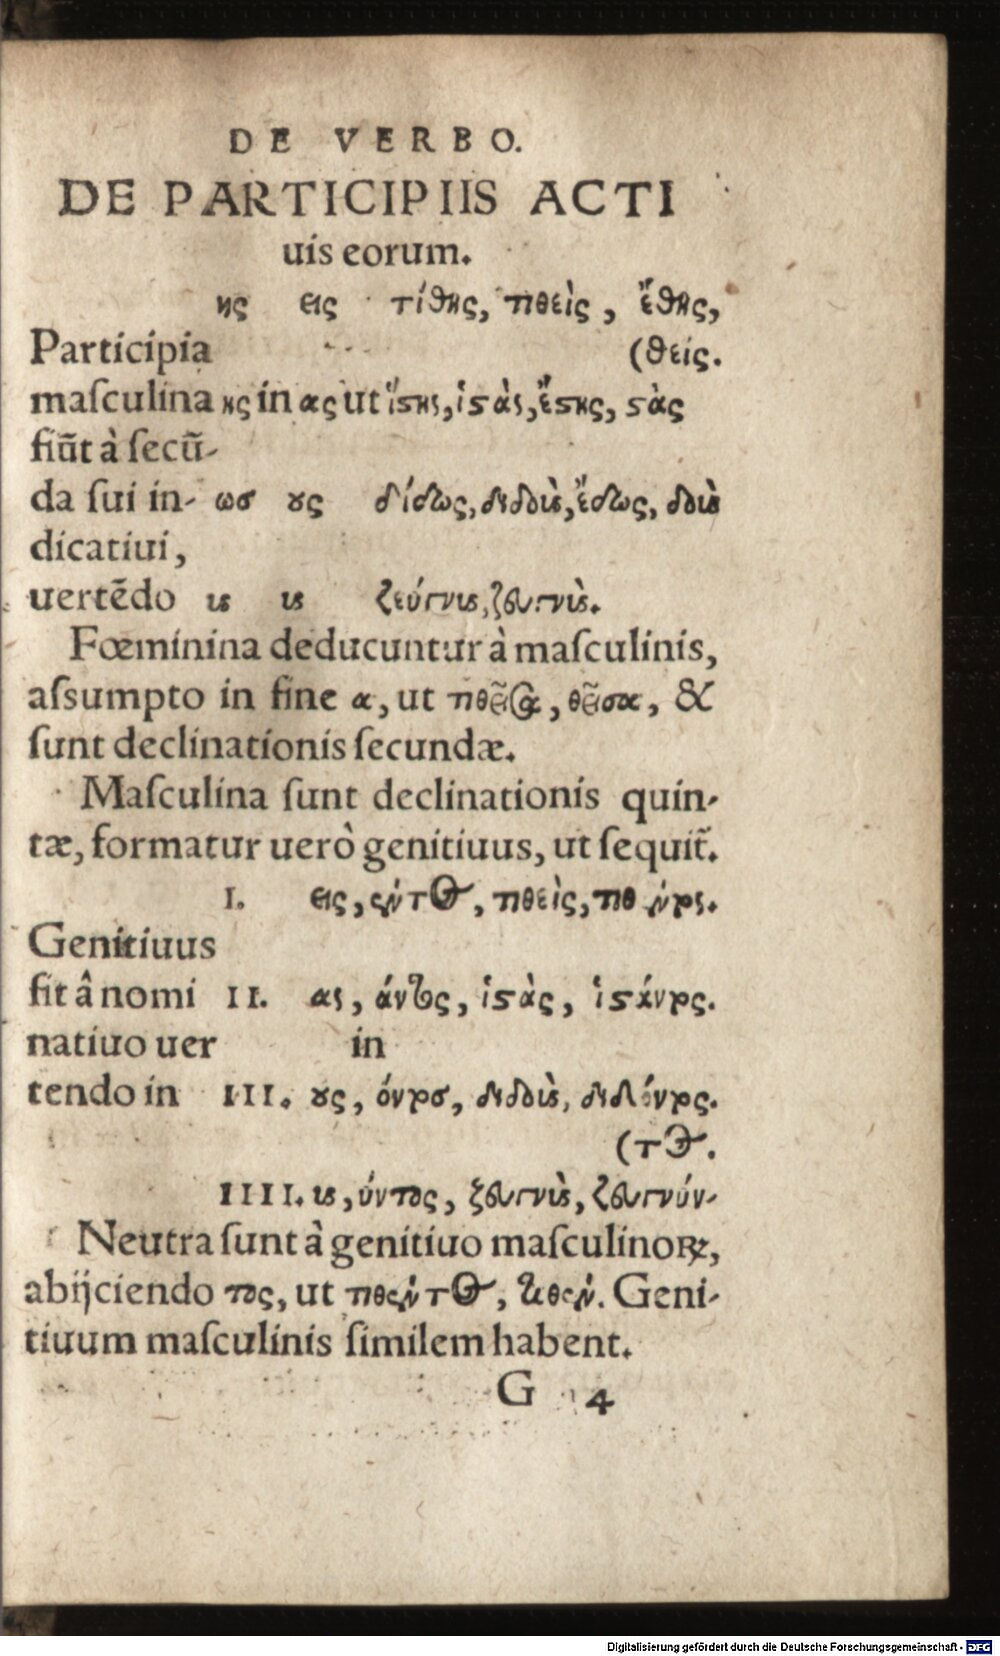 DE VERBO.
DE PARTICIPIIS ACTI
uis eorum.
ης εις τίθης, τιθεὶς, ἔθης,
Participia (θείς.
maſculina ης in ας ut ἵστης, ἱστὰς, ἔστης, στὰς
fiũt à ſecũ-
da ſui in- ωσ ους δίδως, διδοὺς, ἔδως, δοὺς
dicatiui,
uertẽdo υς υς ζεύγνυς, ζευγνὺς.
Fœminina deducuntur à maſculinis,
aſſumpto in fine α, ut τιθεῖσα, θεῖσα, &
ſunt declinationis ſecundæ.
Maſculina ſunt declinationis quin-
tæ, formatur uerò genitiuus, ut ſequit̃.
I. εις, έντος, τιθεὶς, τιθέντος.
Genitiuus
fit â nomi II. ας, άντος, ἱστὰς, ἱστάντος.
natiuo uer in
tendo in III. ους, όντοσ, διδοὺς, διδόντος.
(τος.
IIII. υς, ύντος, ζευγνὺς, ζευγνύν-
Neutra ſunt à genitiuo maſculinoꝝ,
abijciendo τος, ut τιθέντος, τιθέν. Geni-
tiuum maſculinis ſimilem habent.
G 4
Digitalisierung gefördert durch die Deutsche Forschungsgemeinschaft - DFG